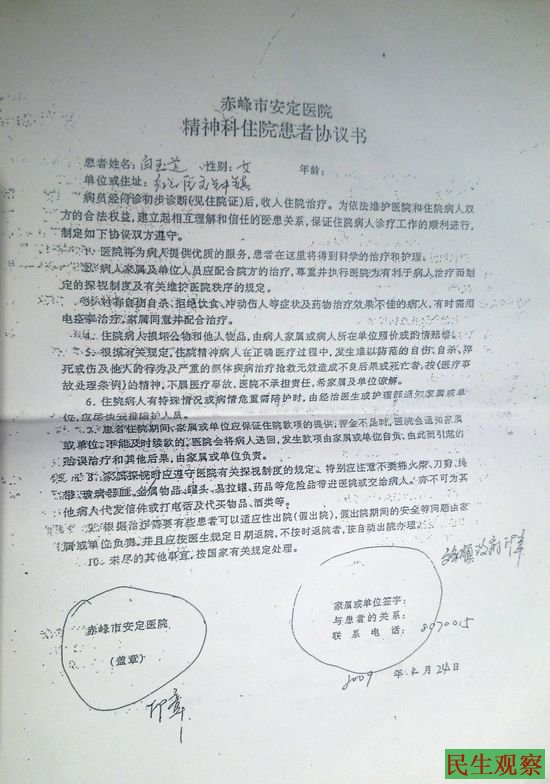 赤峰市安定医院
精神科住院患者协议书
患者姓名: 白玉芝 性别: 女 年龄:
单位或住址:
病员经门诊初步诊断(见住院证)后,收入住院治疗。为依法维护医院和住院病人双
方的合法权益,建立起相互理解和信任的医患关系,保证住院病人诊疗工作的顺利进行,
制定如下协议双方遵守。
1、医院将为病人提供优质的服务,患者在这里将得到科学的治疗和护理。
2、病人家属及单位人员应配合院方的治疗,尊重并执行医院为有利于病人治疗而制
定的探视制度及有关维护医院秩序的规定。
3、对有自伤自杀、拒绝饮食、冲动伤人等症状及药物治疗效果不佳的病人,有时需用
电痉挛治疗,家属同意并配合治疗。
4、住院病人损坏公物和他人物品,由病人家属或病人所在单位照价或酌情赔偿。
5、根据有关规定,住院精神病人在正确医疗过程中,发生难以防范的自伤、自杀、猝
死或伤及他人的行为及严重的躯体疾病治疗抢救无效造成不良后果或死亡者,按《医疗事
故处理条例》的精神,不属医疗事故,医院不承担责任,希家属及单位谅解。
6、住院病人有特殊情况或病情危重需陪护时,由经治医生或护理部通知家属或单
位,应尽快安排陪护人员。
7、患者住院期间,家属或单位应保证住院款项的提供,押金不足时,医院会通知家属
或单位,不能及时续款的,医院会将病人送回,发生款项由家属或单位自负,由此而引起的
贻误治疗和其他后果,由家属或单位负责。
8、家属探视时应遵守医院有关探视制度的规定。特别应注意不要将火柴、刀剪、绳
带、玻璃器皿、金属物品、罐头、易拉罐、药品等危险品带进医院或交给病人。亦不可为其
他病人代发信件或打电话及代买物品、酒类等。
9、根据治疗需要有些患者可以适应性出院(假出院),假出院期间的安全等问题由家
属或单位负责,并且应按医生规定日期返院,不按时返院者,按自动出院办理。
10、未尽的其他事宜,按国家有关规定处理。
镇政府印章
赤峰市安定医院
(盖章)
印章
家属或单位签字:
与患者的关系:
联系电话: 8070015
2009 年 2 月 24 日
民生观察